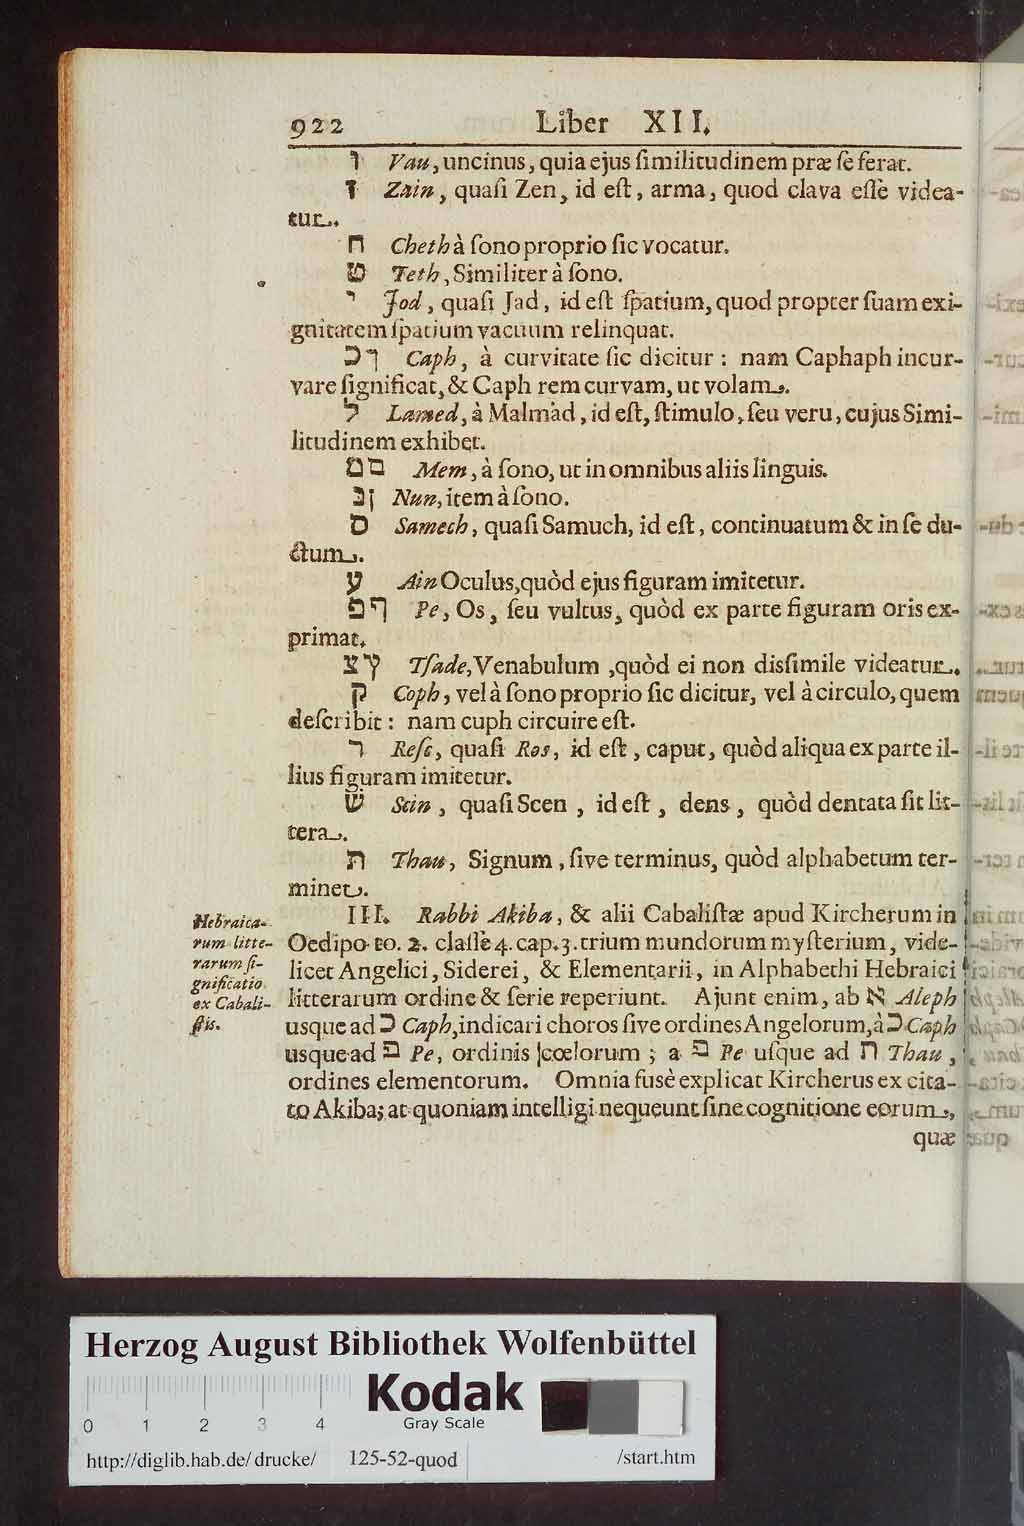 922 Liber XII.
ו Vau, uncinus, quia ejus ſimilitudinem præ ſe ferat.
ז Zain, quaſi Zen, id eſt, arma, quod clava eſſe videa-
tur.
ח Cheth à ſono proprio ſic vocatur.
ט Teth, Similiter à ſono.
י Jod, quaſi Jad, id eſt ſpatium, quod propter ſuam exi-
gnitatem ſpatium vacuum relinquat.
כך Caph, à curvitate ſic dicitur: nam Caphaph incur-
vare ſignificat, & Caph rem curvam, ut volam.
ל Lamed, à Malmad, id eſt, ſtimulo, ſeu veru, cujus Simi-
litudinem exhibet.
מם Mem, à ſono, ut in omnibus aliis linguis.
נן Nun, item à ſono.
ס Samech, quaſi Samuch, id eſt, continuatum & in ſe du-
ctum.
ע Ain Oculus, quòd ejus figuram imitetur.
פף Pe, Os, ſeu vultus, quòd ex parte figuram oris ex-
primat.
צץ Tſade, Venabulum, quòd ei non disſimile videatur.
ק Coph, vel à ſono proprio ſic dicitur, vel à circulo, quem
deſcribit: nam cuph circuire eſt.
ר Reſc, quaſi Ros, id eſt, caput, quòd aliqua ex parte il-
lius figuram imitetur.
ש Scin, quaſi Scen, id eſt, dens, quòd dentata ſit lit-
tera.
ת Thau, Signum, ſive terminus, quòd alphabetum ter-
minet.
III. Rabbi Akiba, & alii Cabaliſtæ apud Kircherum in
Oedipo to. 2. claſſe 4. cap. 3. trium mundorum myſterium, vide-
licet Angelici, Siderei, & Elementarii, in Alphabethi Hebraici
litterarum ordine & ſerie reperiunt. Ajunt enim, ab א Aleph
usque ad כ Caph, indicari choros ſive ordines Angelorum, à כ Caph
usque ad פ Pe, ordinis cœlorum; a פ Pe uſque ad ת Thau,
ordines elementorum. Omnia fusè explicat Kircherus ex cita-
to Akiba; at quoniam intelligi nequeunt ſine cognitione eorum,
quæ
Hebraica-
rum litte-
rarum ſi-
gnificatio
ex Cabali-
ſtis.
Herzog August Bibliothek Wolfenbüttel
Kodak
Gray Scale
0 1 2 3 4
http://diglib.hab.de/drucke/ 125-52-quod /start.htm